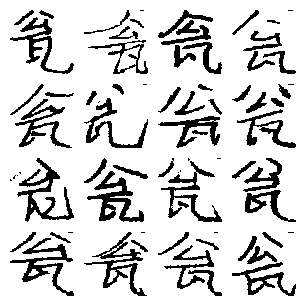 瓮瓮瓮瓮
瓮瓮瓮瓮
瓮瓮瓮瓮
瓮瓮瓮瓮